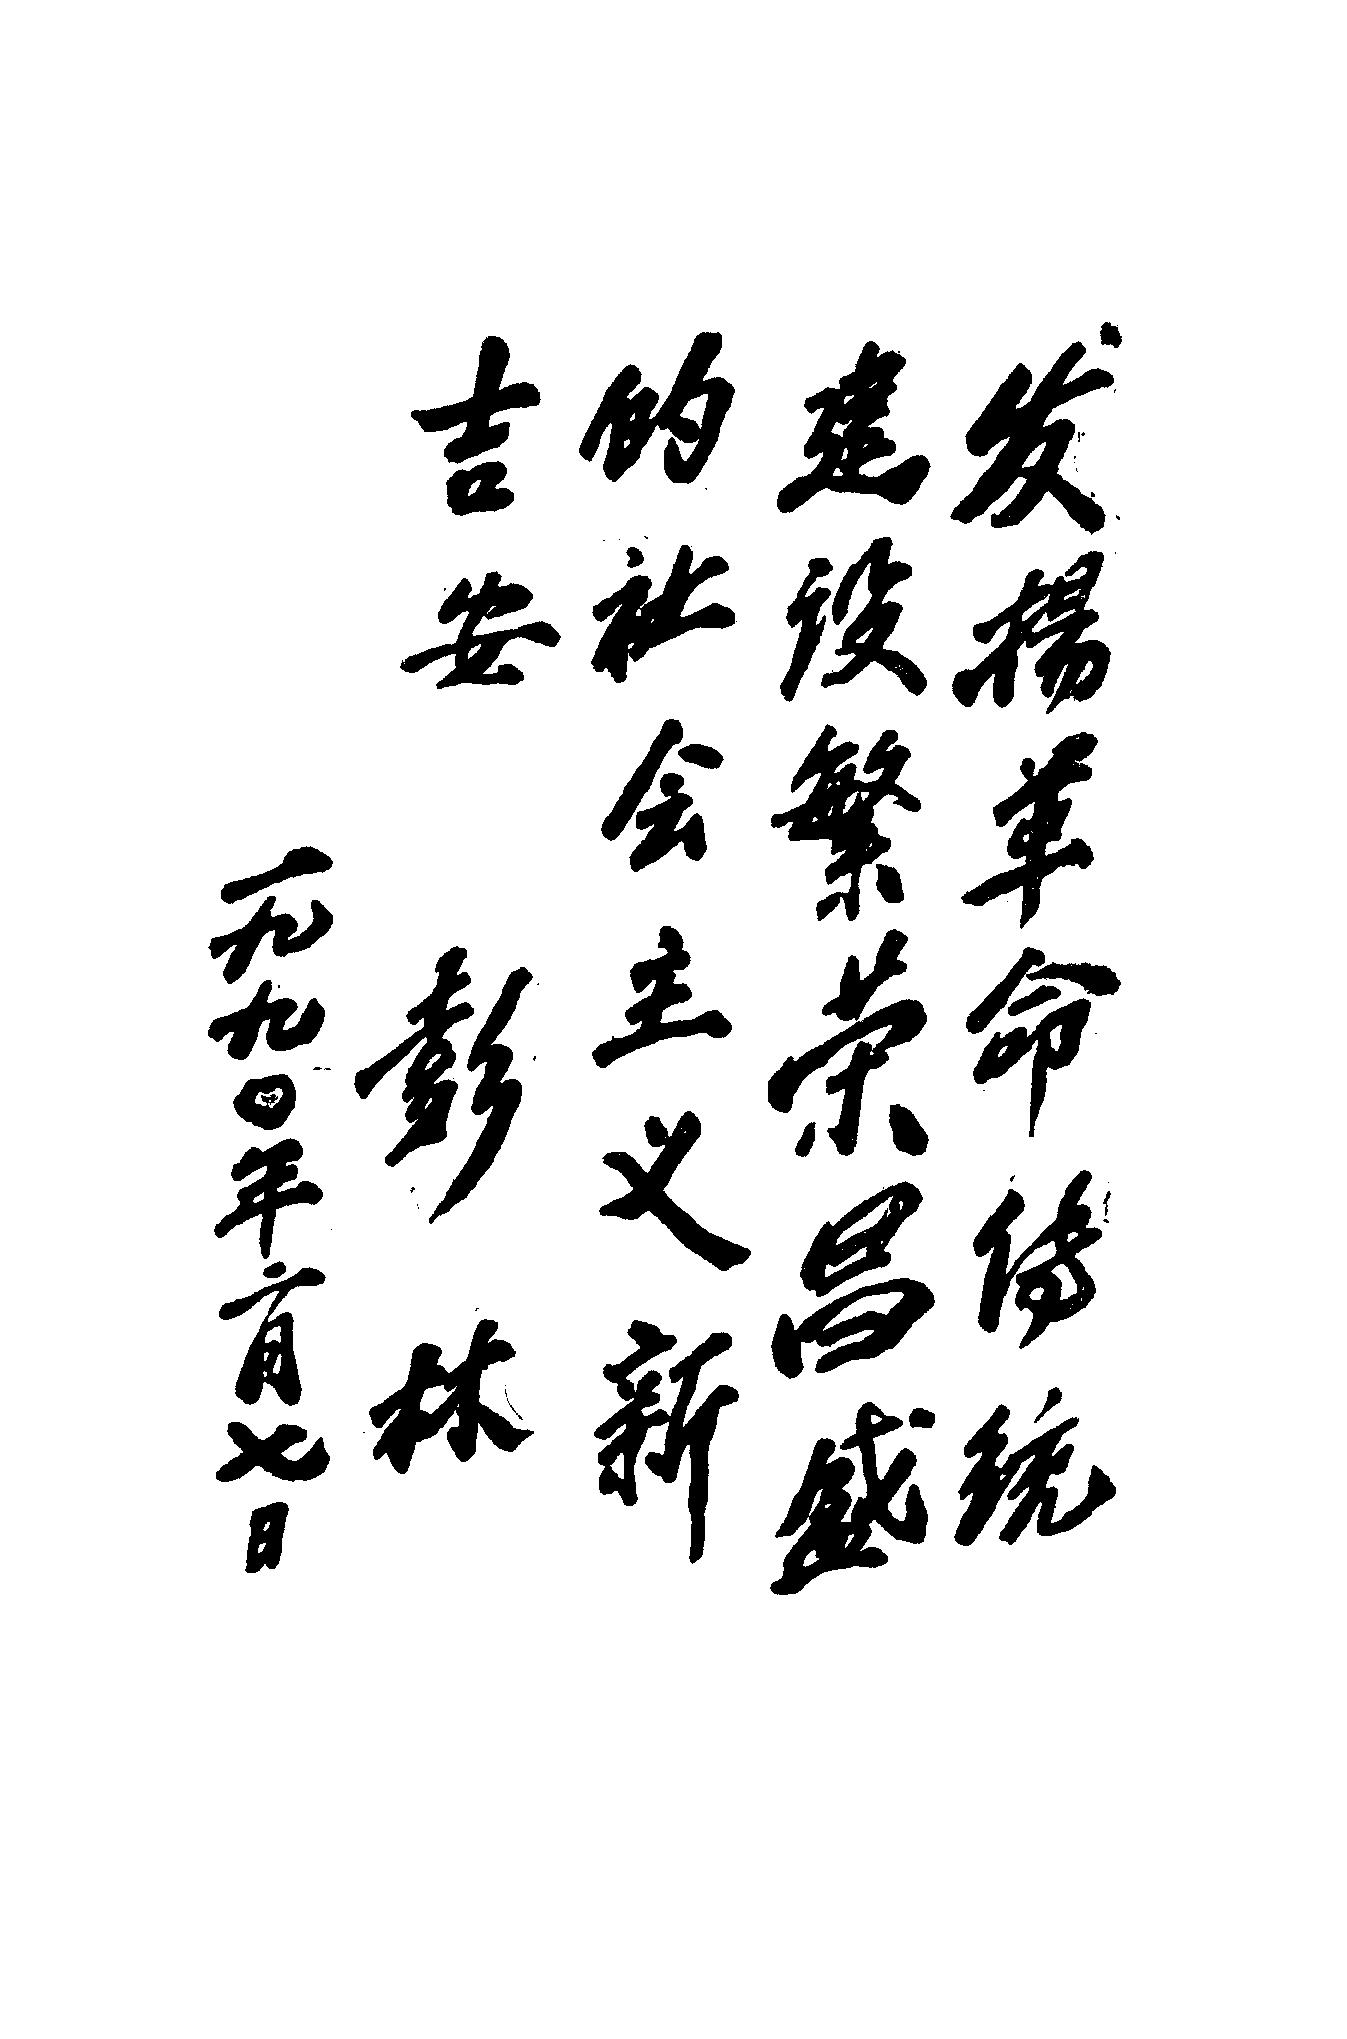 发揚革命传统
建设繁荣昌盛
的社会主义新
吉安
彭林
一九九〇年六月七日